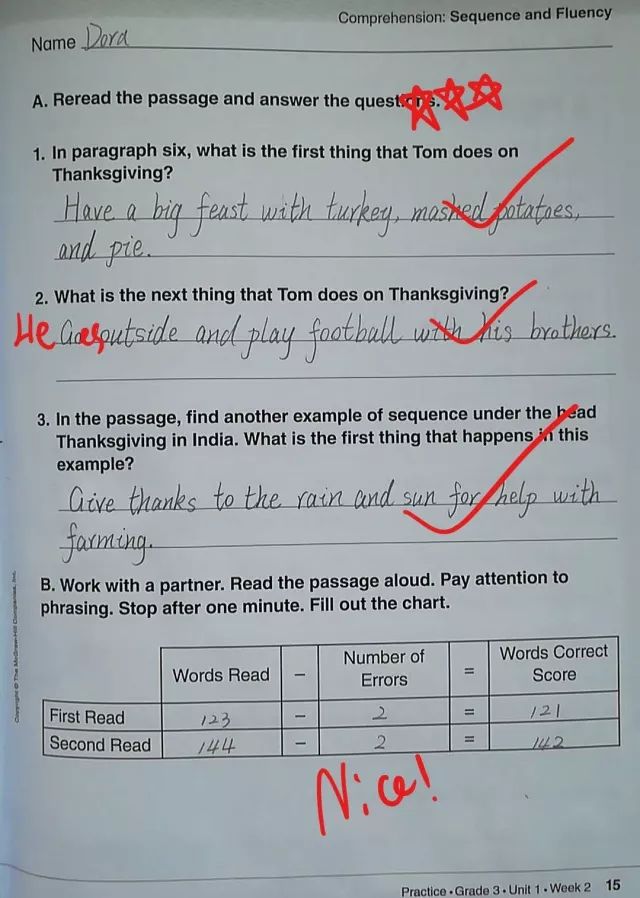 Comprehension: Sequence and Fluency
Name Dora
A. Reread the passage and answer the questions.
1. In paragraph six, what is the first thing that Tom does on
Thanksgiving?
Have a big feast with turkey, mashed potatoes,
and pie.
2. What is the next thing that Tom does on Thanksgiving?
He Goes outside and play football with his brothers.
3. In the passage, find another example of sequence under the head
Thanksgiving in India. What is the first thing that happens in this
example?
Give thanks to the rain and sun for help with
farming.
B. Work with a partner. Read the passage aloud. Pay attention to
phrasing. Stop after one minute. Fill out the chart.
Words Read – Number of Errors = Words Correct Score
First Read 123 – 2 = 121
Second Read 144 – 2 = 142
Nice!
Copyright © The McGraw-Hill Companies, Inc.
Practice • Grade 3 • Unit 1 • Week 2 15